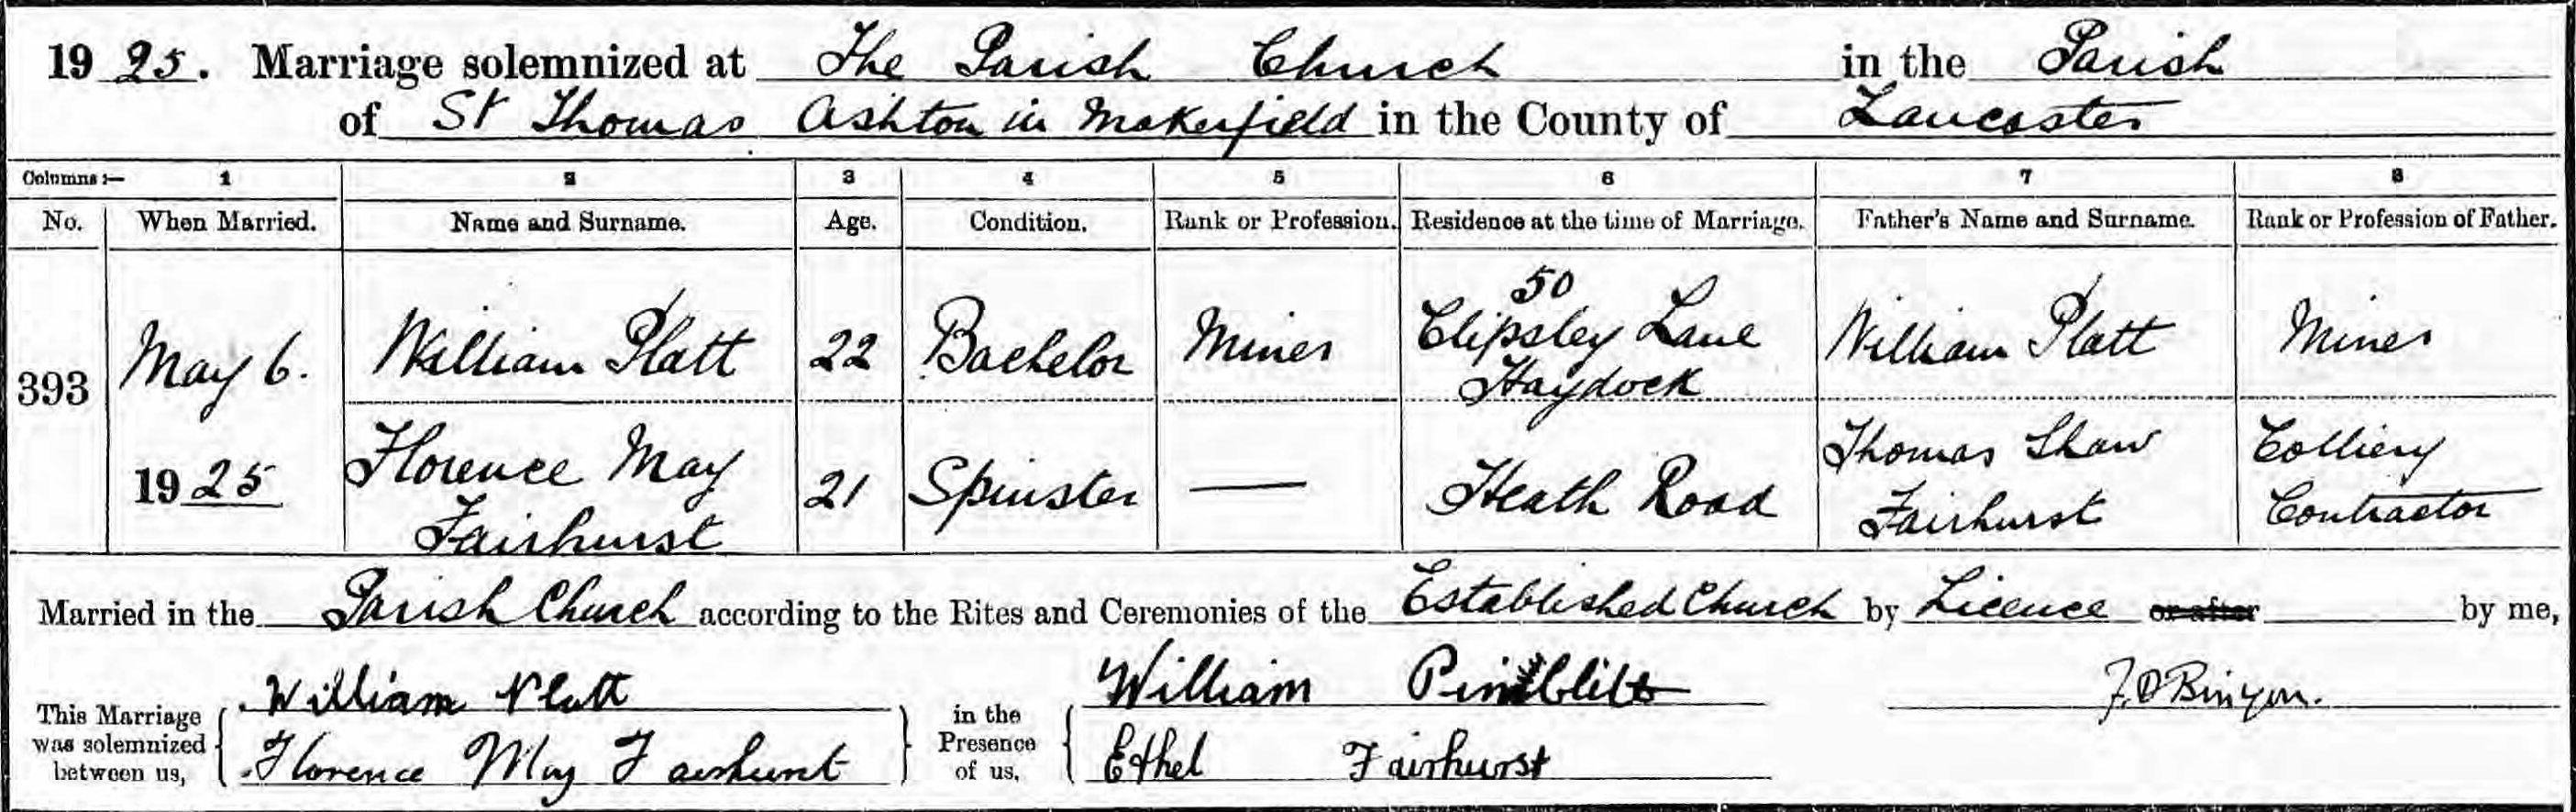 1925. Marriage solemnized at The Parish Church in the Parish
of St Thomas Ashton in Makerfield in the County of Lancaster
Columns :— 1 2 3 4 5 6 7 8
No. When Married. Name and Surname. Age. Condition. Rank or Profession. Residence at the time of Marriage. Father's Name and Surname. Rank or Profession of Father.
393 May 6. William Platt 22 Bachelor Miner 50 Clipsley Lane Haydock William Platt Miner
1925 Florence May Fairhurst 21 Spinster — Heath Road Thomas Shaw Fairhurst Colliery Contractor
Married in the Parish Church according to the Rites and Ceremonies of the Established Church by Licence or after by me,
This Marriage was solemnized between us, William Platt in the Presence of us, William F. O Binyon.
Florence May Fairhurst Ethel Fairhurst